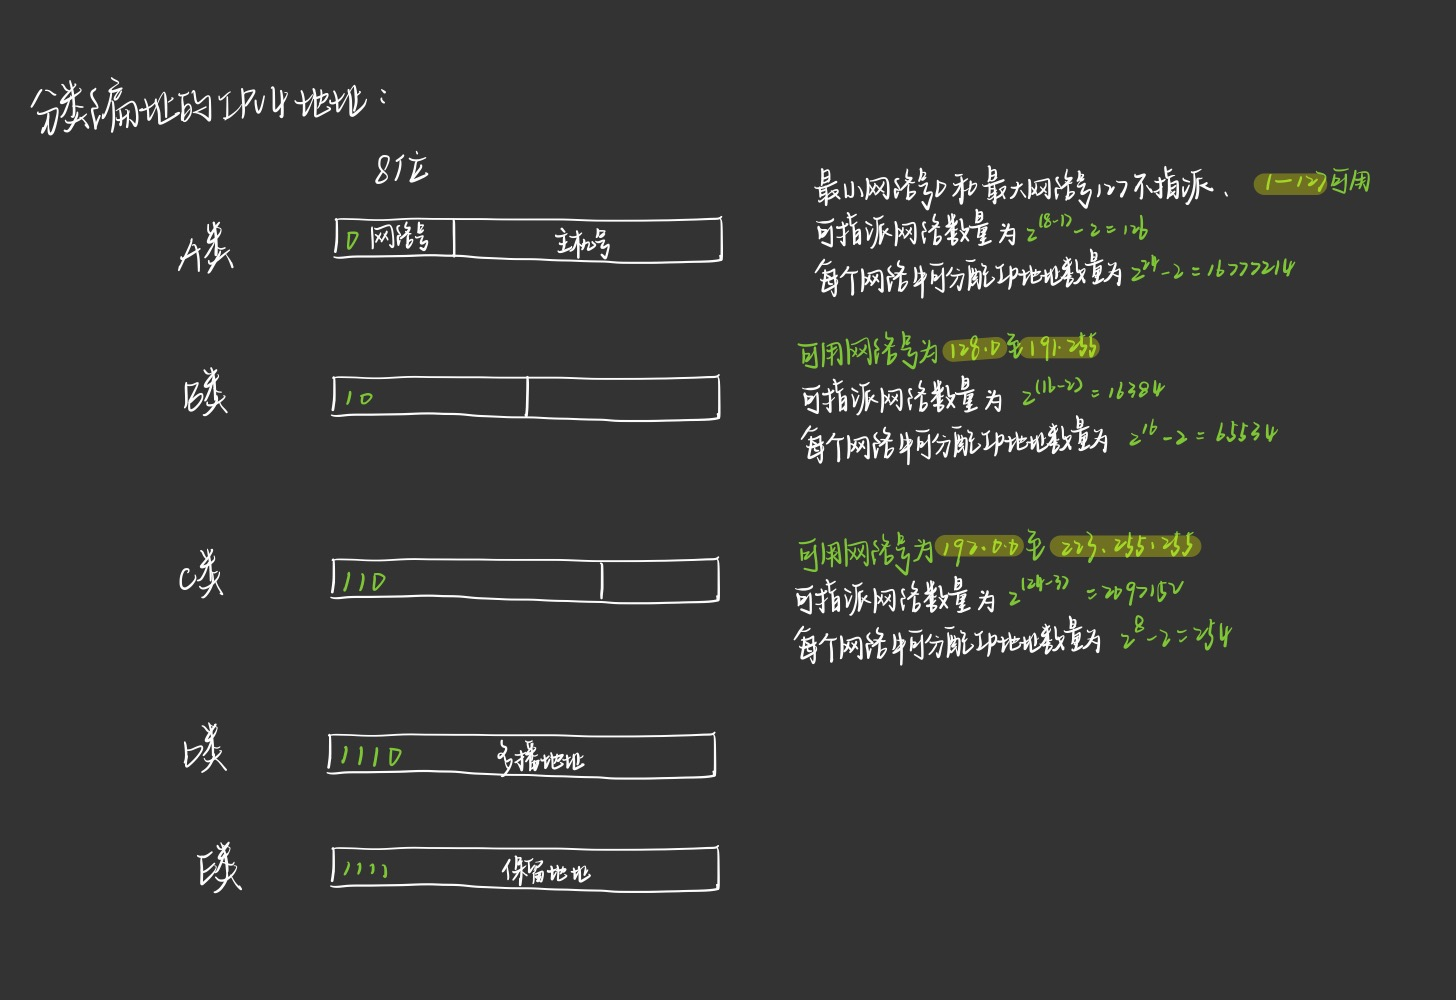 分类编址的IPv4地址：
8位
A类
0 网络号 主机号
最小网络号0和最大网络号127不指派、 1-127可用
可指派网络数量为 2^(8-1)-2=126
每个网络中可分配IP地址数量为 2^24-2=16777214
B类
10
可用网络号为128.0至191.255
可指派网络数量为 2^(16-2)=16384
每个网络中可分配IP地址数量为 2^16-2=65534
C类
110
可用网络号为192.0.0至223.255.255
可指派网络数量为 2^(24-3)=2097152
每个网络中可分配IP地址数量为 2^8-2=254
D类
1110 多播地址
E类
1111 保留地址